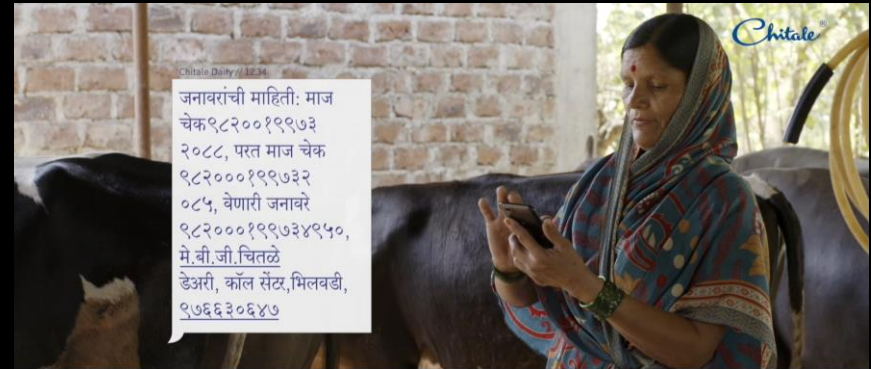 Chitale®
Chitale Dairy // 12:34
जनावरांची माहिती: माज
चेक९८२००१९९७३
२०८८, परत माज चेक
९८२०००१९९७३२
०८५, वेणारी जनावरे
९८२०००१९९७३४९५०,
मे.बी.जी.चितळे
डेअरी, कॉल सेंटर,भिलवडी,
९७६६३०६४७